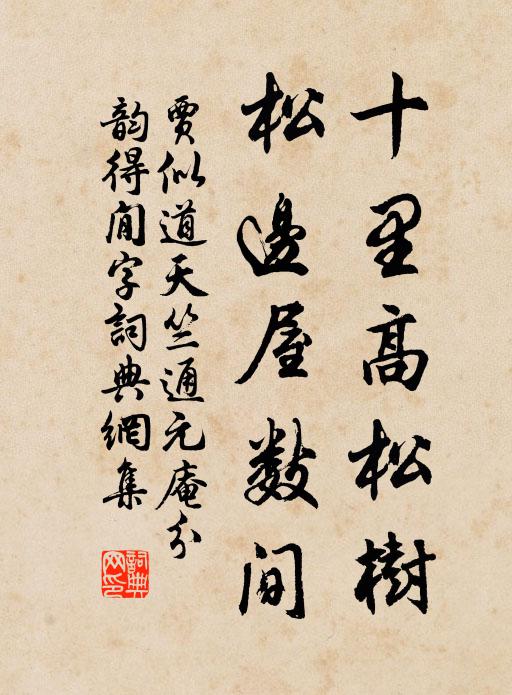 十里高松樹
松邊屋數间
賈似道天竺通元庵分
韵得间字詞典網集
詞典网印